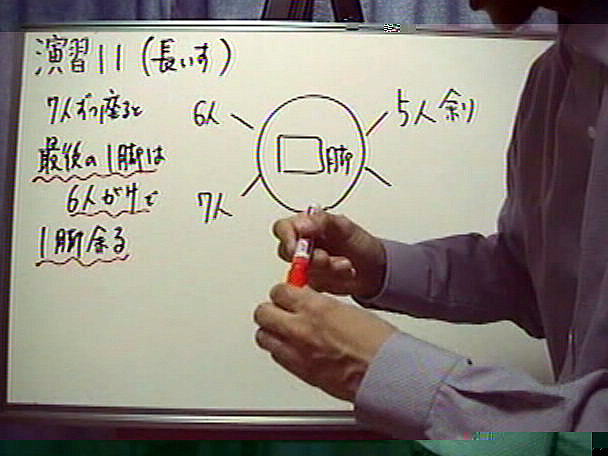 演習11(長いす)
7人ずつ座ると
最後の1脚は
6人がけで
1脚余る
6人
5人余り
脚
7人